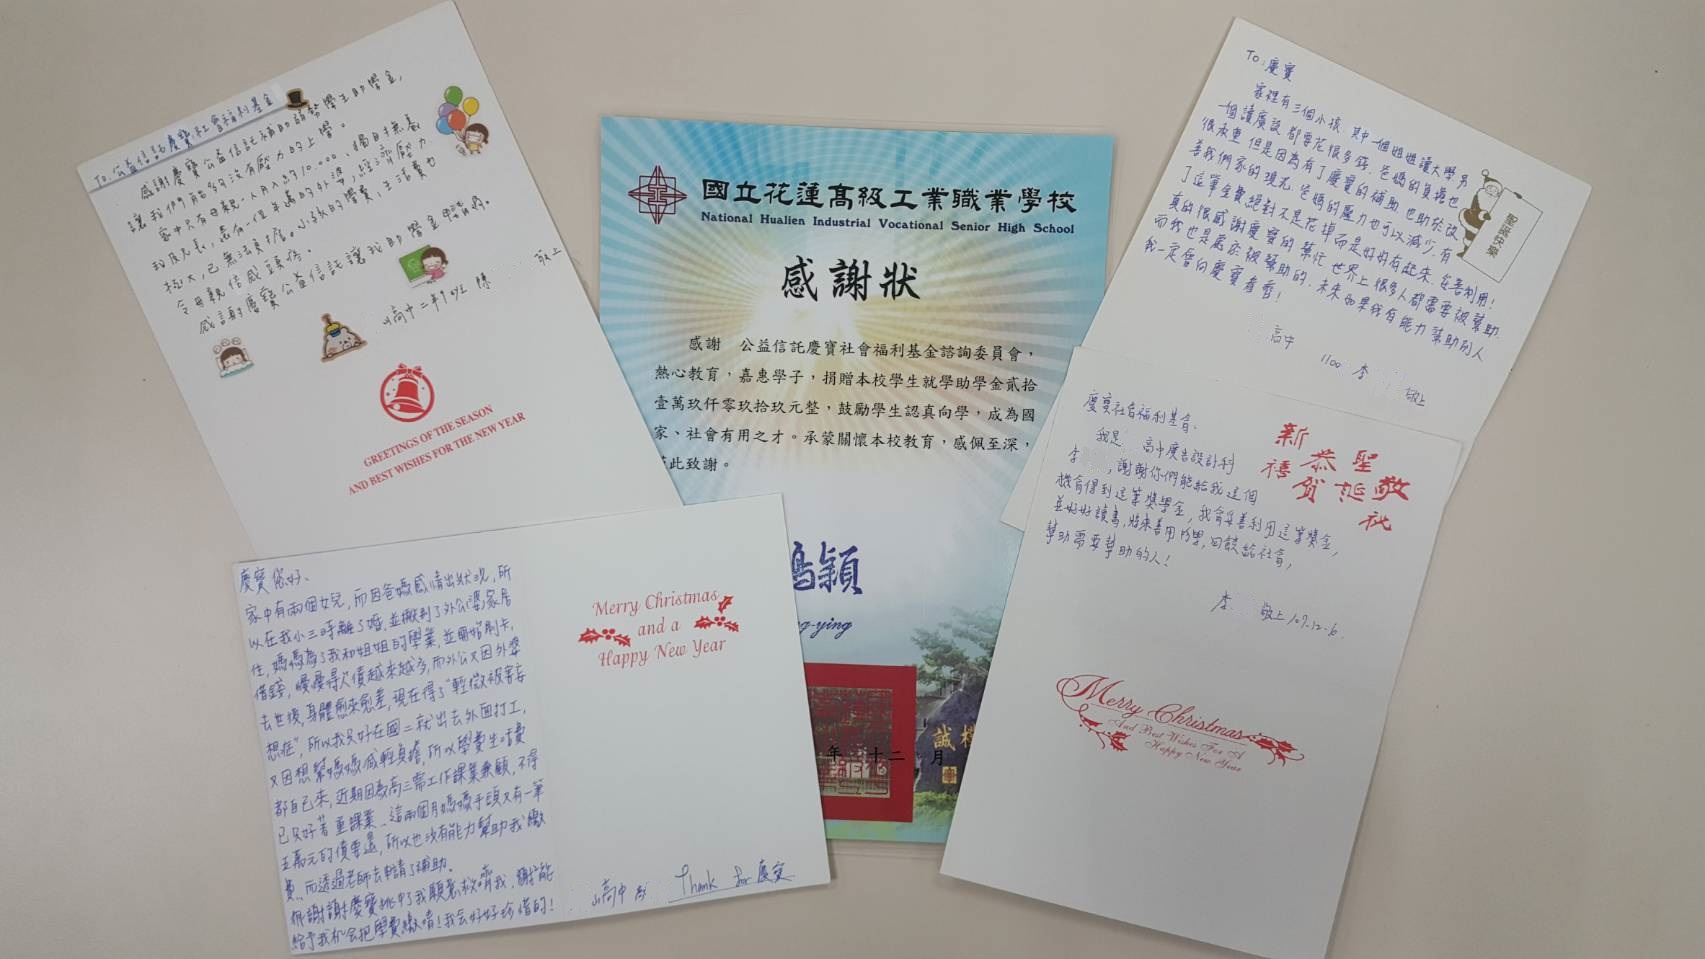 TO:公益信託慶寶社會福利基金
感謝慶寶公益信託補助弱勢學生助學金,
讓我們能夠沒有壓力的上學。
家中只有母親一人月入約10,000、獨自扶養
我及兄長,還有一位年邁的外婆,經濟壓力
極大,已無法負擔。小孩的學費,生活費也
令母親倍感頭疼。
感謝慶寶公益信託讓我助學金
高中二年 陳 敬上
GREETINGS OF THE SEASON
AND BEST WISHES FOR THE NEW YEAR
國立花蓮高級工業職業學校
National Hualien Industrial Vocational Senior High School
感謝狀
感謝 公益信託慶寶社會福利基金諮詢委員會,
熱心教育,嘉惠學子,捐贈本校學生就學助學金貳拾
壹萬玖仟零玖拾玖元整,鼓勵學生認真向學,成為國
家、社會有用之才。承蒙關懷本校教育,感佩至深,
此致謝。
鴻穎
g-ying
年 十二 月
誠樸
TO:慶寶
家裡有三個小孩,其中一個姐姐讀大學,另
一個讀廣設,都要花很多錢,爸媽的負擔也
很承重,但是因為有了慶寶的補助,也助於改
善我們家的現況,爸媽的壓力也可以減少,有
了這筆金費絕對不是花掉而是好好存起來,妥善利用!
真的很感謝慶寶的幫忙,世界上很多人都需要被幫助,
而我也是屬於被幫助的,未來如果我有能力幫助的人
我一定會向慶寶看齊!
高中 1100 李 敬上
聖誕快樂
慶寶社會福利基會、
我是 高中廣告設計科
李 ,謝謝你們能給我這個
機會得到這筆獎學金,我會妥善利用這筆獎金,
並好好讀書,將來善用所學,回饋給社會,
幫助需要幫助的人!
李 敬上 107-12-6.
敬祝
聖誕
恭賀
新禧
Merry Christmas
And Best Wishes For A
Happy New Year
慶寶您好、
家中有兩個女兒,而因爸媽感情出狀況,所
以在我小三時離了婚,並搬到了外公(婆)家居
住,媽媽為了我和姐姐的學業,並開始刷卡,
借錢,慢慢得欠債越來越多,而外公又因外婆
去世後,身體愈來愈差,現在得了"輕微被害妄
想症",所以我只好在國二就出去外面打工,
又因想幫媽媽減輕負擔,所以學費生活費
都自己來,近期因為高三需工作課業兼顧,不得
已只好著重課業、這兩個月媽媽手頭又有一筆
五萬元的債要還,所以也沒有能力幫助我繳
費,而透過老師去申請了補助。
很謝謝慶寶挑中了我願意救濟我,謝謝能
給予我機會把學費繳清!我會好好珍惜的!
Merry Christmas
and a
Happy New Year
高中 Thank for 慶寶